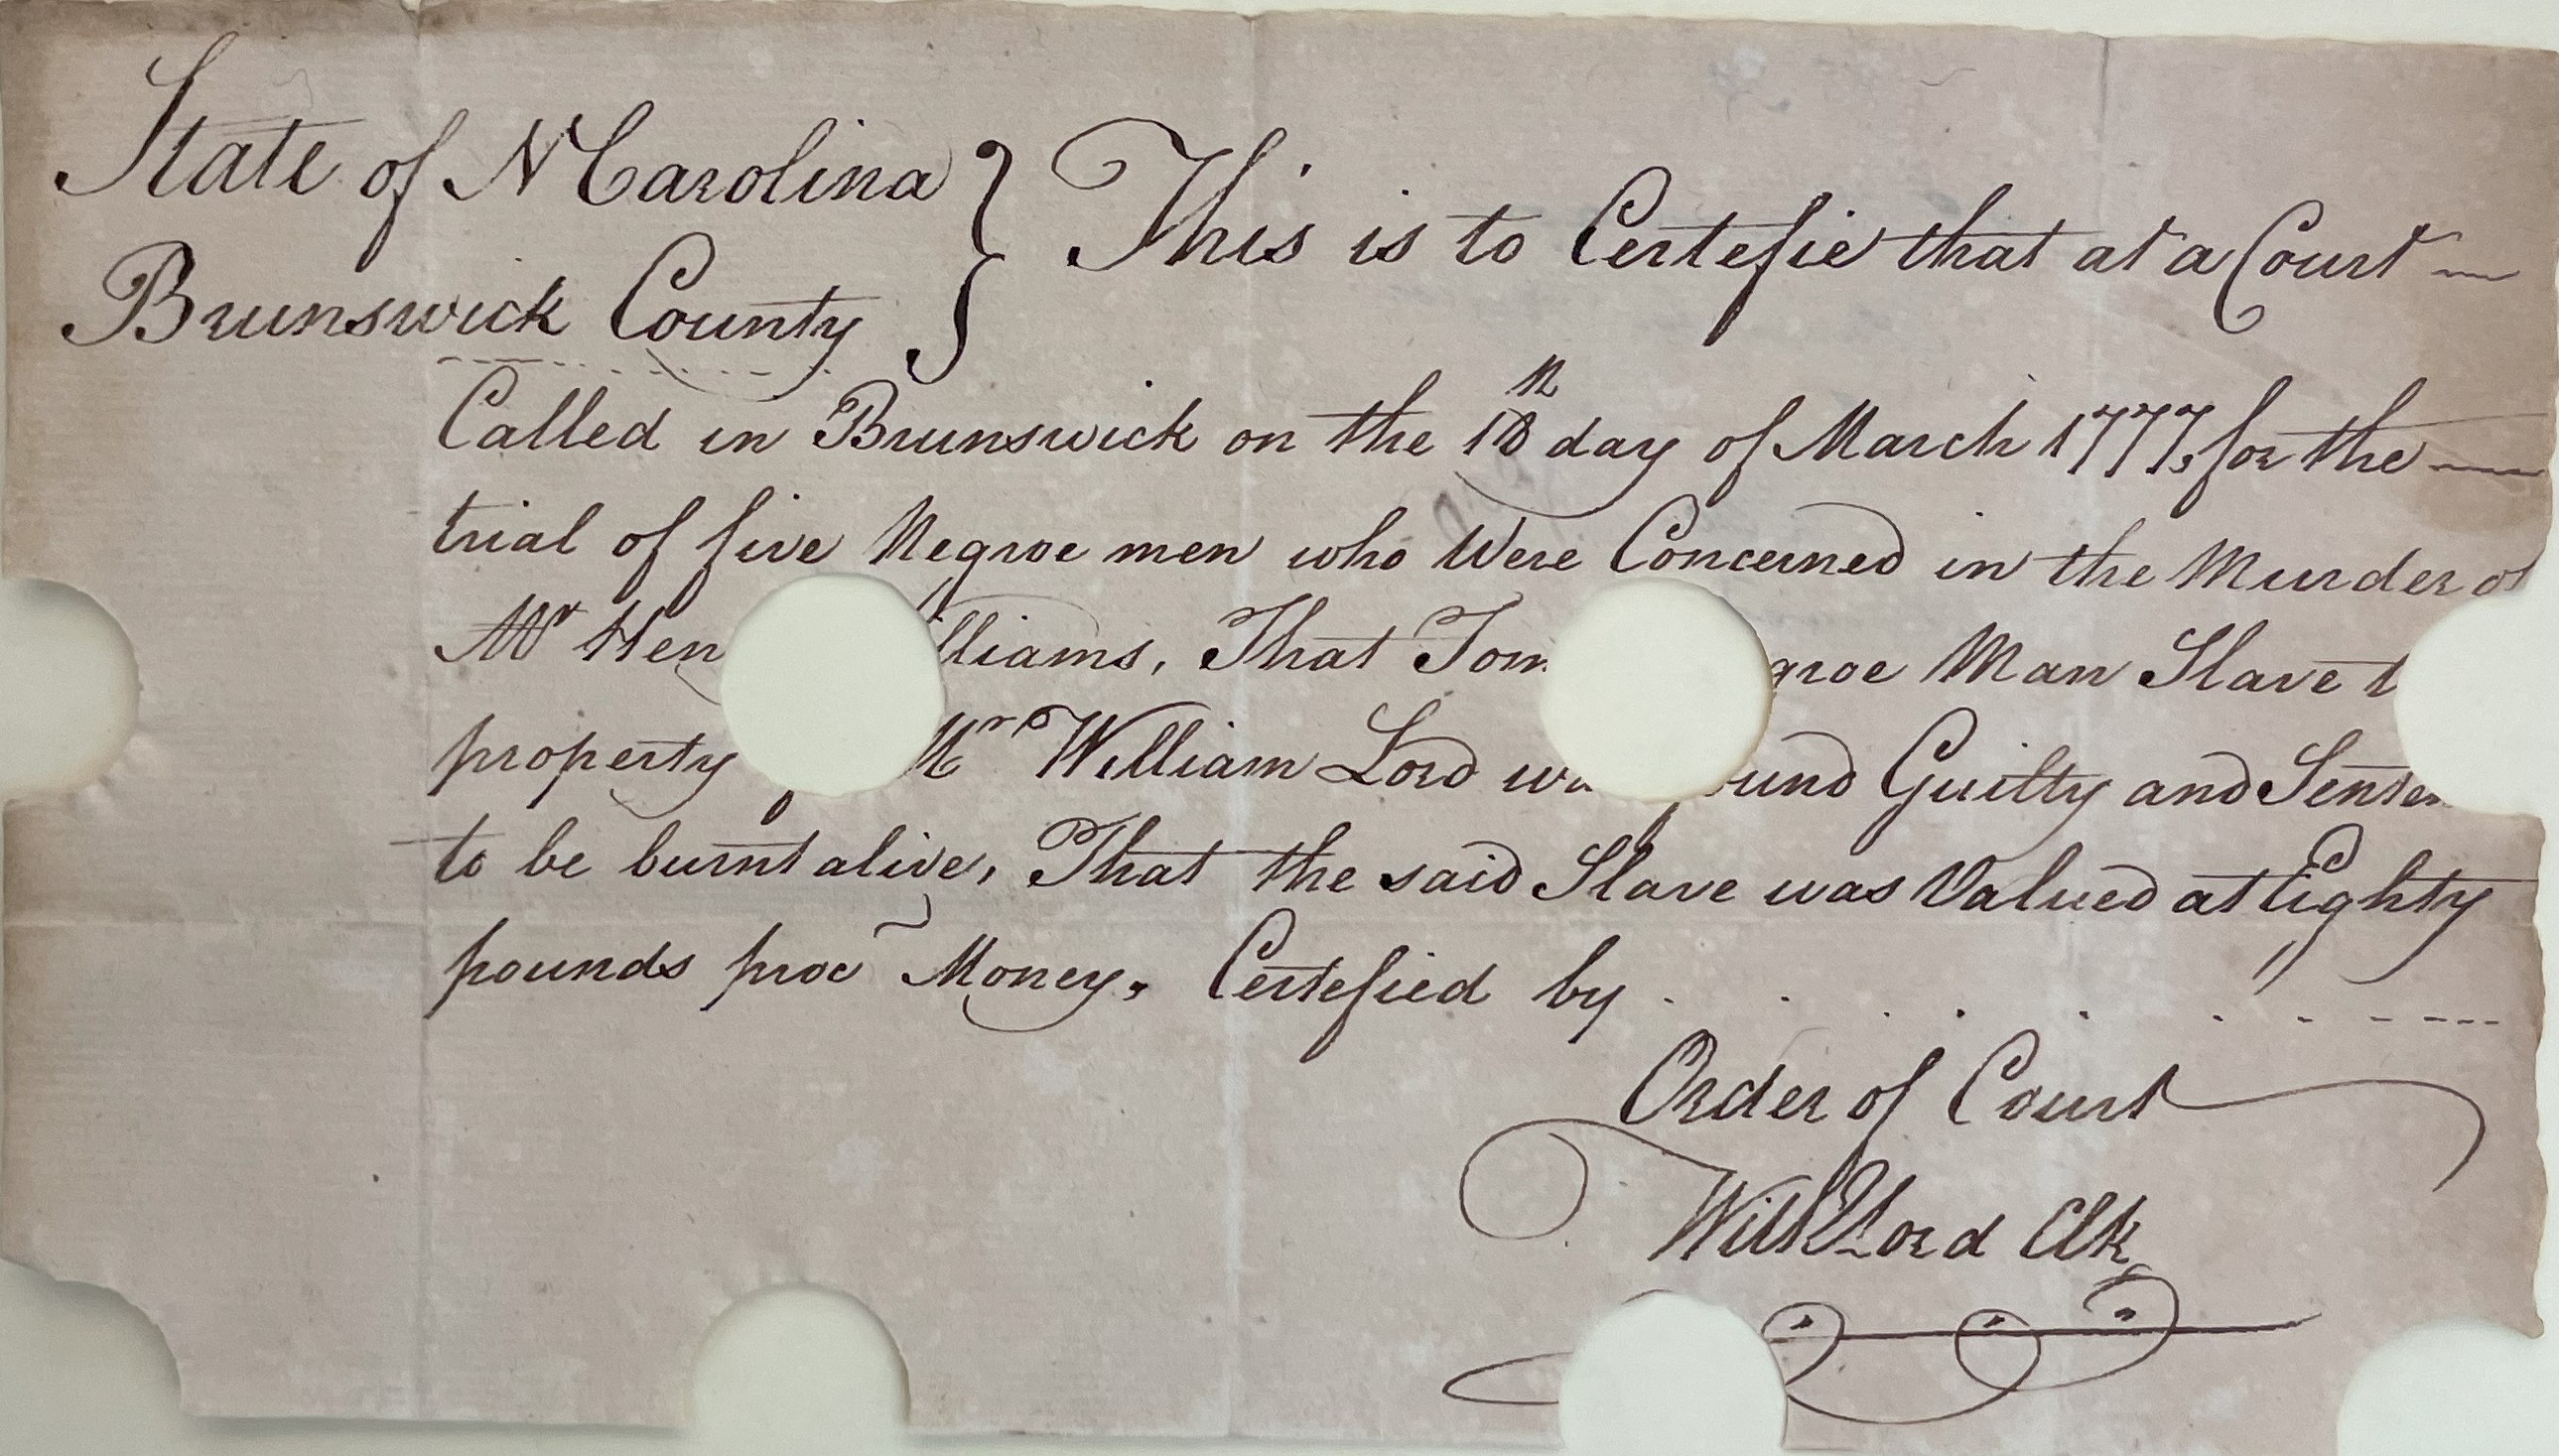 State of N Carolina
Brunswick County
This is to Certefie that at a Court
Called in Brunswick on the 18th day of March 1777, for the
trial of five Negroe men who Were Concerned in the Murder of
Mr Hen lliams, That Tom groe Man Slave t
property Mr William Lord wa und Guilty and Senten
to be burnt alive, That the said Slave was Valued at Eighty
pounds proc Money. Certefied by
Order of Court
Will Lord Clk